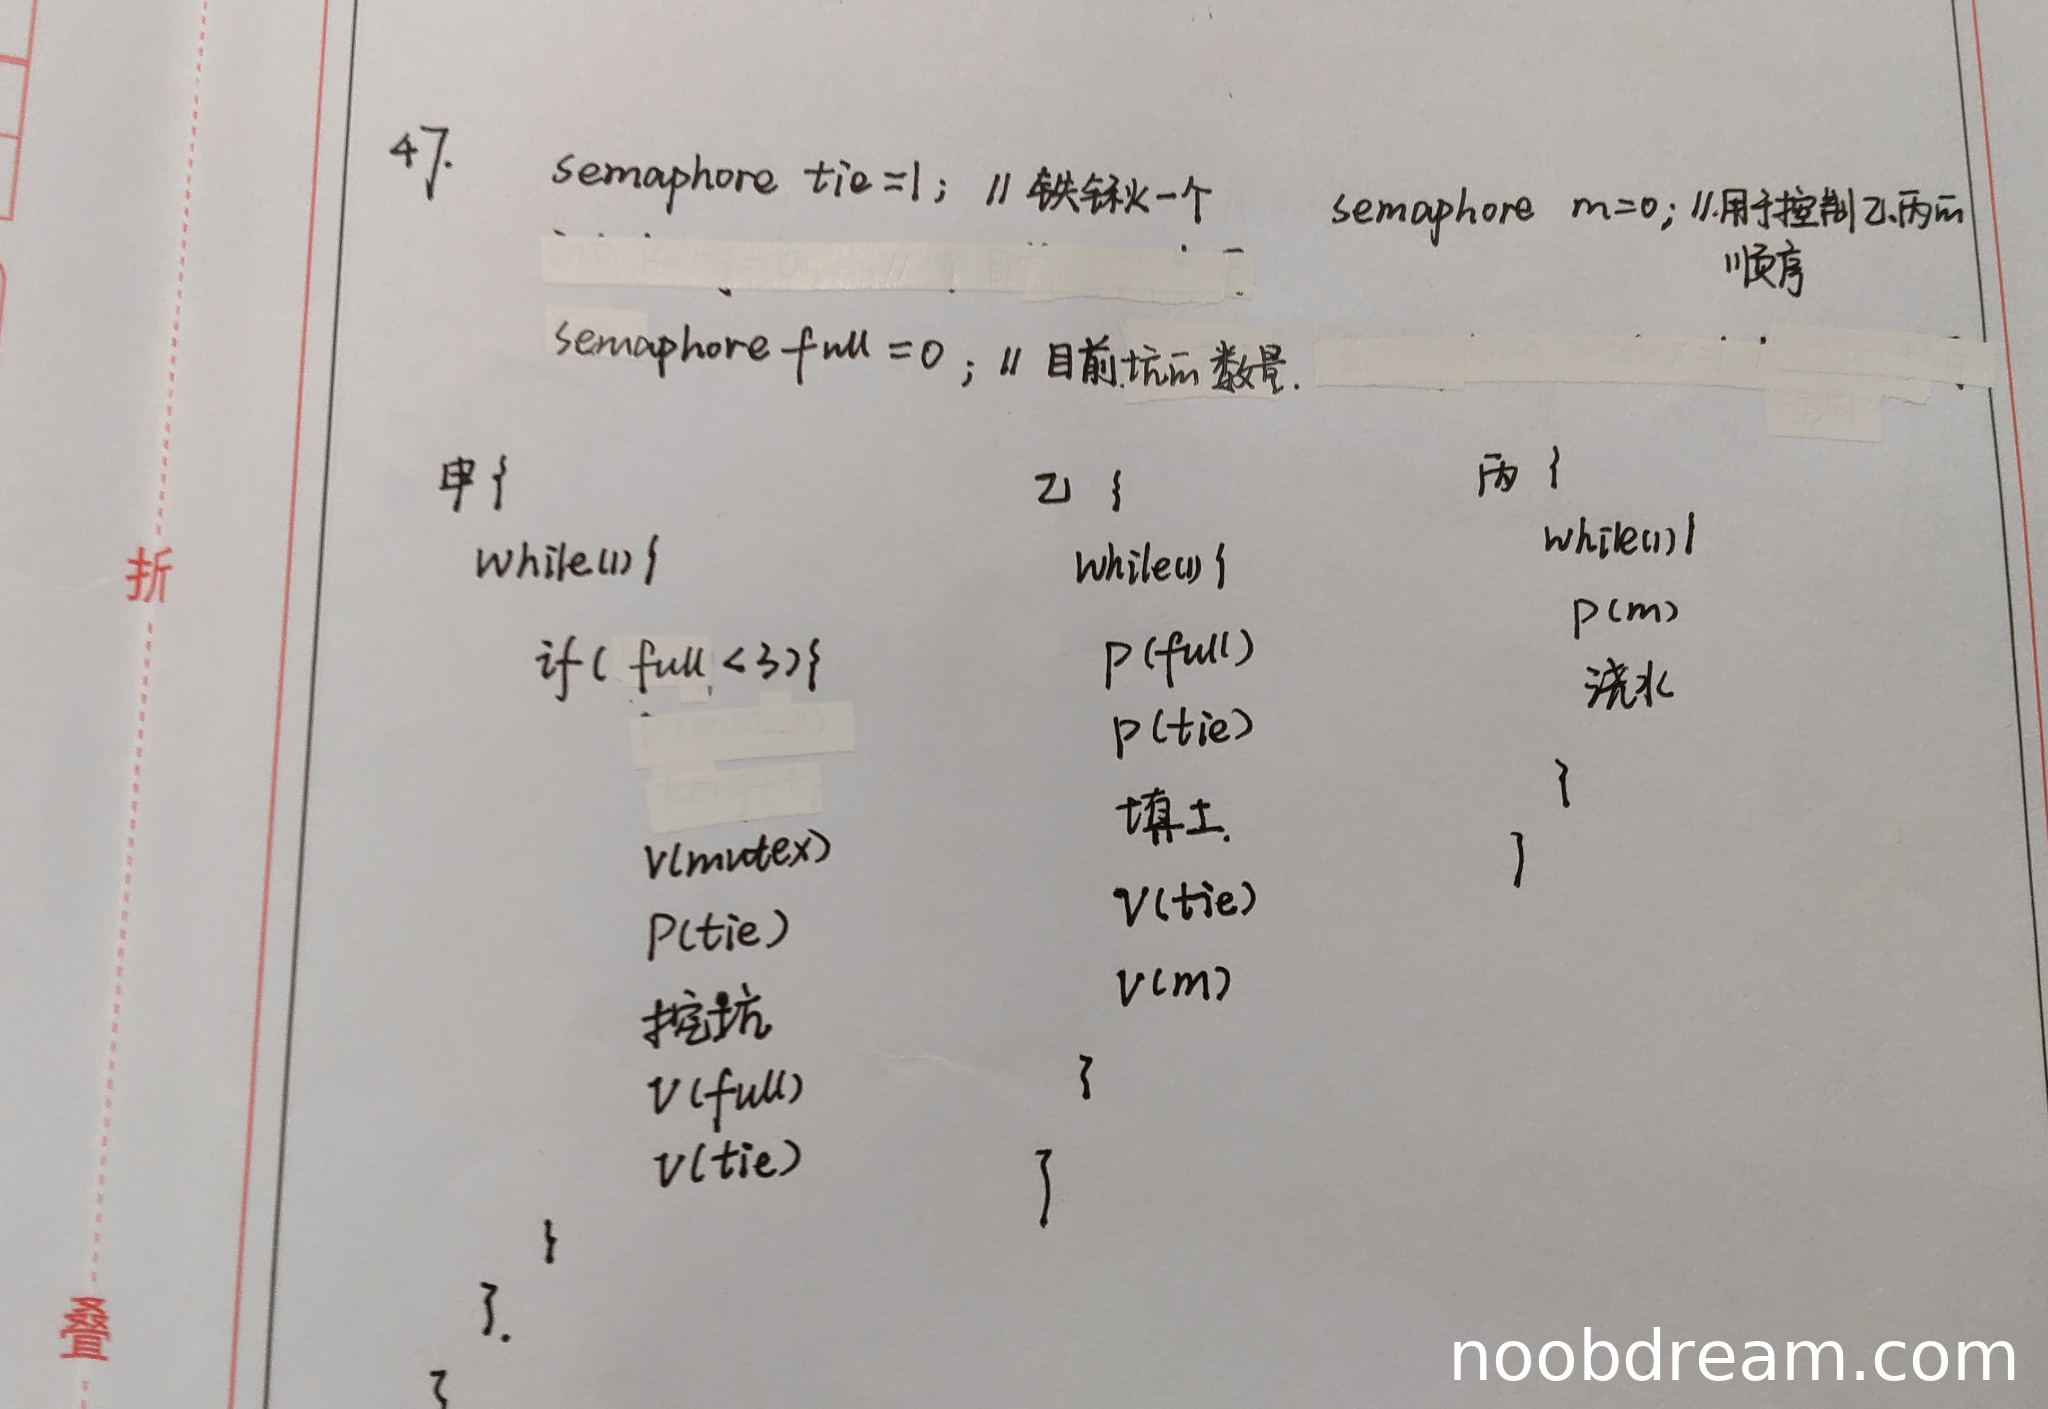 47.
semaphore tie=1; // 铁锹一个
semaphore m=0; // 用于控制乙、丙的
顺序
semaphore full=0; // 目前坑的数量.
甲{
while(1){
if(full<3){
V(mutex)
P(tie)
挖坑
V(full)
V(tie)
}
}.
}
乙{
while(1){
P(full)
P(tie)
填土.
V(tie)
V(m)
}
}
丙{
while(1){
P(m)
浇水
}
}
折
叠
noobdream.com